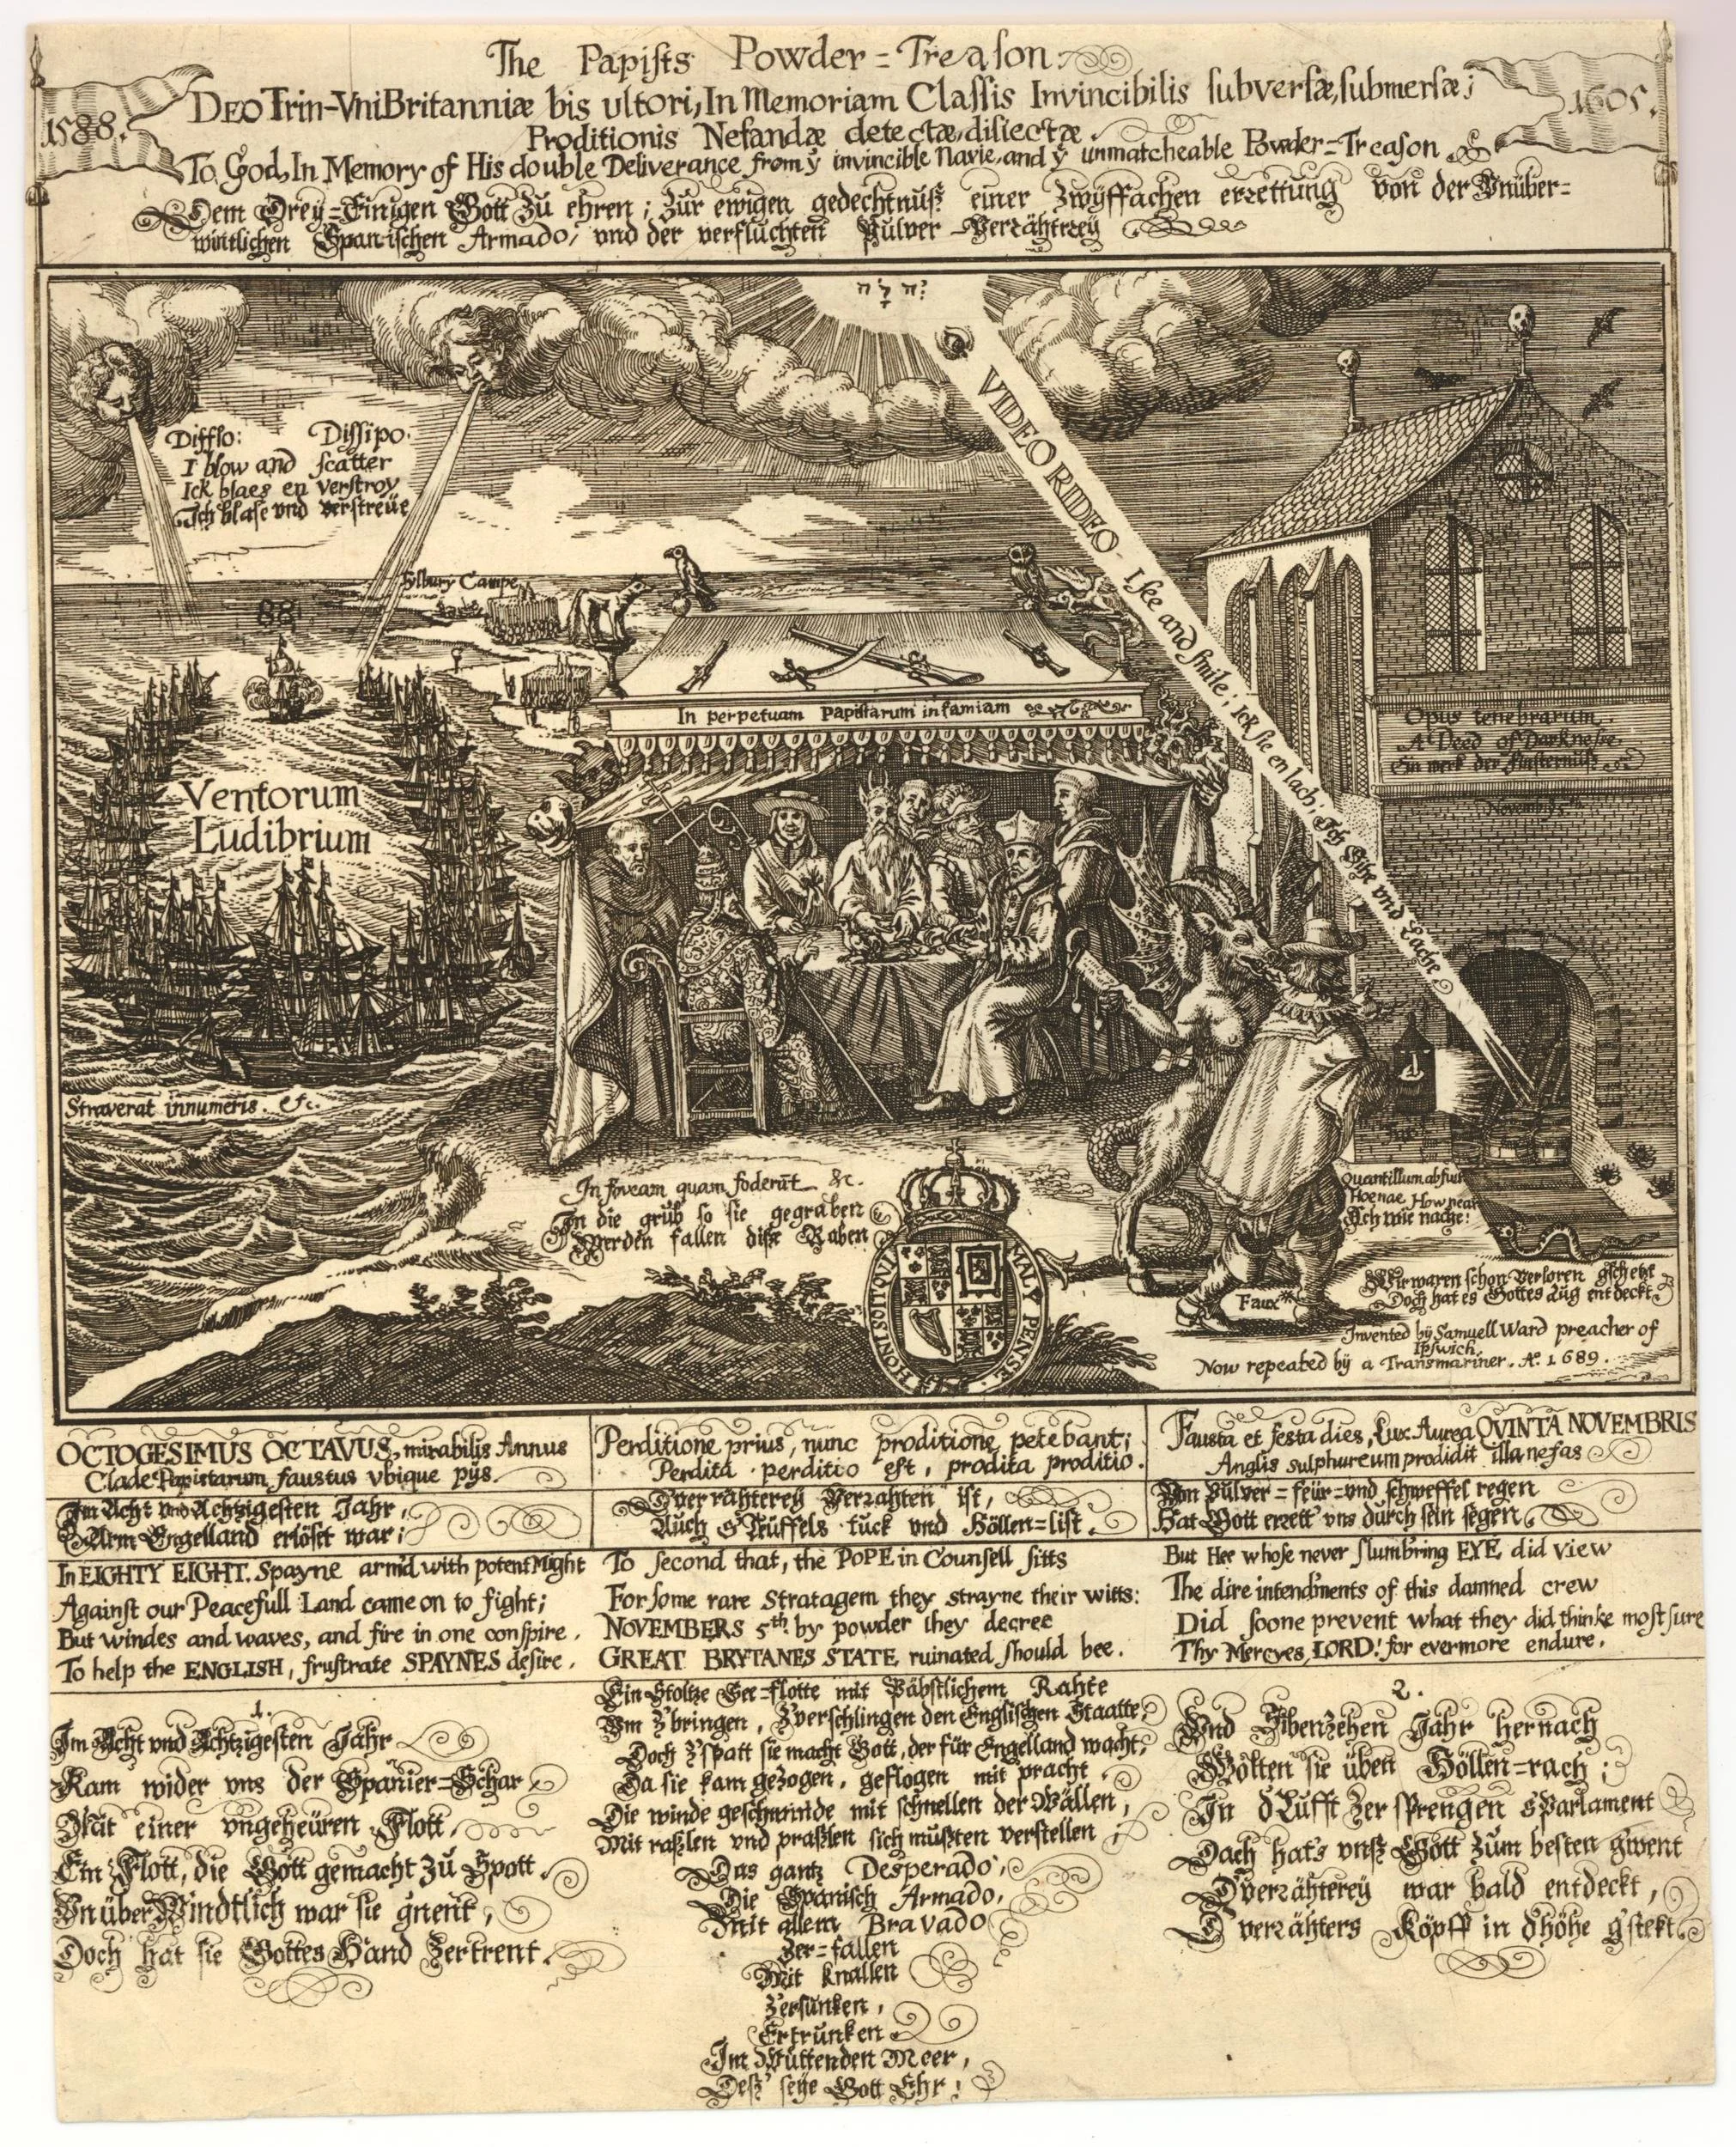 The Papists Powder=Treason.
1588.
DEO Trin-VniBritanniæ bis ultori, In Memoriam Classis Invincibilis subversæ, submersæ;
1605.
Proditionis Nefandæ detectæ, disiectæ.
To God, In Memory of His double Deliverance from yͤ invincible Navie, and yͤ unmatcheable Powder=Treason
Dem Drey=Einigen Gott zu ehren; zur ewigen gedechtnuß einer zwyffachen errettung von der Vnüber=
wintlichen Spanischen Armado, vnd der verfluchten Pulver Verrähtrey
יהוה
Difflo: Dissipo.
I blow and scatter
Ick blaes en verstroy
Ich blase vnd verstreue
VIDEO RIDEO I see and smile; Ick sie en lach; Ich sihe vnd Lache
Tylbury Campe
88
In perpetuam Papistarum infamiam
Opus tenebrarum.
A Deed of Darknesse.
Ein werk der finsternuß
Novemb. 5th
Ventorum
Ludibrium
Straverat innumeris. &c.
In foveam quam foderūt &c.
In die grub so sie gegraben
Werden fallen dise Raben
HONI SOIT QVI MALY PENSE.
Quantillum abfuit
Hoe nae How near
Ach wie nache!
Wir waren schon verloren gschetzt
Doch hat es Gottes Aug entdeckt
Faux
Invented by Samuell Ward preacher of
Ipswich.
Now repeated by a Transmariner. Aº. 1689.
OCTOGESIMUS OCTAVUS, mirabilis Annus
Clade Papistarum faustus vbique pijs.
Im Acht vnd Achtzigesten Jahr,
Arm Engelland erlöset war;
In EIGHTY EIGHT. Spayne arm'd with potent Might
Against our Peacefull Land came on to fight;
But windes and waves, and fire in one conspire,
To help the ENGLISH, frustrate SPAYNES desire.
Perditione prius, nunc proditione petebant;
Perdita perditio est, prodita proditio.
D'verrähterey Verrahten ist,
Auch s'Teüffels tuck vnd Höllen=list.
To second that, the POPE in Counsell sitts
For some rare Stratagem they strayne their witts:
NOVEMBERS 5th. by powder they decree
GREAT BRYTANES STATE ruinated should bee.
Fausta et festa dies, Lux Aurea QVINTA NOVEMBRIS
Anglis sulphureum prodidit illa nefas
Von Pulver=feür=vnd schweffel regen
Hat Gott errett vns durch sein segen.
But Hee whose never slumbring EYE did view
The dire intendments of this damned crew
Did soone prevent what they did thinke most sure
Thy Mercyes, LORD! for evermore endure.
1.
Im Acht vnd Achtzigesten Jahr
Kam wider vns der Spanier=Schar
Mit einer vngeheüren Flott,
Ein Flott, die Gott gemacht zu Spott.
VnüberWindtlich war sie gnent,
Doch hat sie Gottes Hand zertrent.
Ein Stoltze See=flotte mit Päbstlichem Rahte
Vm z'bringen, z'verschlingen den Englischen Staatte,
Doch z'spatt sie macht Gott, der für Engelland wacht,
Da sie kam gezogen, geflogen mit pracht
Die winde geschwinde mit schnellen der Wällen,
Mit raßlen vnd praßlen sich mußten verstellen
Das gantz Desperado,
Die Spanisch Armado,
Mit allem Bravado
Zer=fallen
Mit knallen
Zersunken,
Ertrunken
Im Wüttenden Meer,
Deß seye Gott Ehr!
2.
Vnd Sibenzehen Jahr hernach
Wolten sie üben Höllen=rach;
In d'Lufft Zersprengen s'Parlament
Doch hat's vnß Gott zum besten g'went
D'verrähterey war bald entdeckt,
D'verrähters Köpff in d'höhe g'stekt.